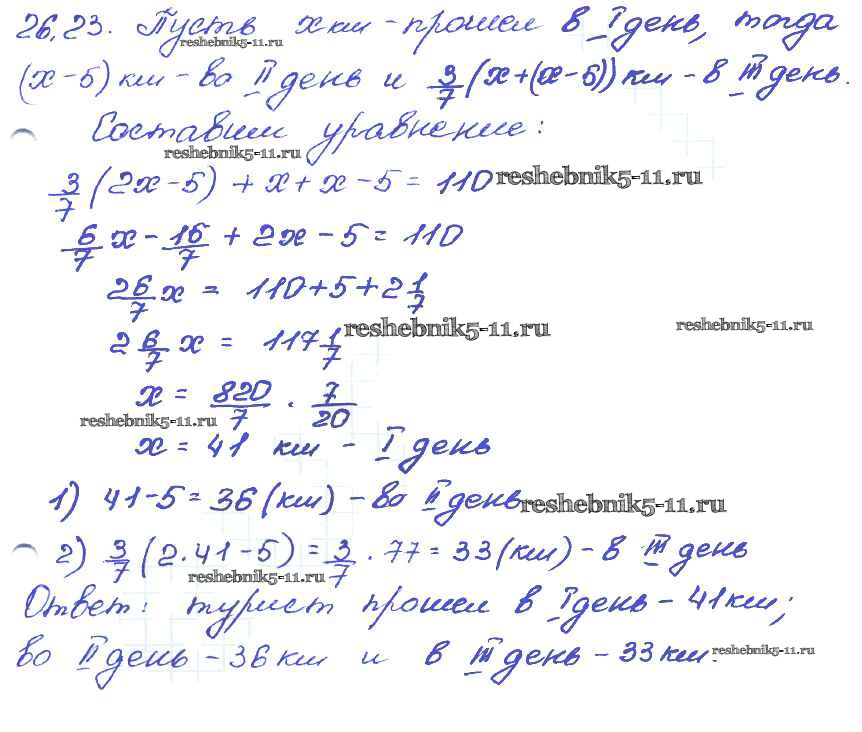 26.23. Пусть x км - прошел в I день, тогда
reshebnik5-11.ru
(x - 5) км - во II день и 3/7 (x + (x - 5)) км - в III день.
Составим уравнение:
reshebnik5-11.ru
3/7 (2x - 5) + x + x - 5 = 110 reshebnik5-11.ru
6/7 x - 15/7 + 2x - 5 = 110
26/7 x = 110 + 5 + 2 1/7
2 6/7 x = 117 1/7 reshebnik5-11.ru reshebnik5-11.ru
x = 820/7 · 7/20
reshebnik5-11.ru
x = 41 км - I день
1) 41 - 5 = 36 (км) - во II день reshebnik5-11.ru
2) 3/7 (2 · 41 - 5) = 3/7 · 77 = 33 (км) - в III день
reshebnik5-11.ru
Ответ: турист прошел в I день - 41 км;
во II день - 36 км и в III день - 33 км. reshebnik5-11.ru